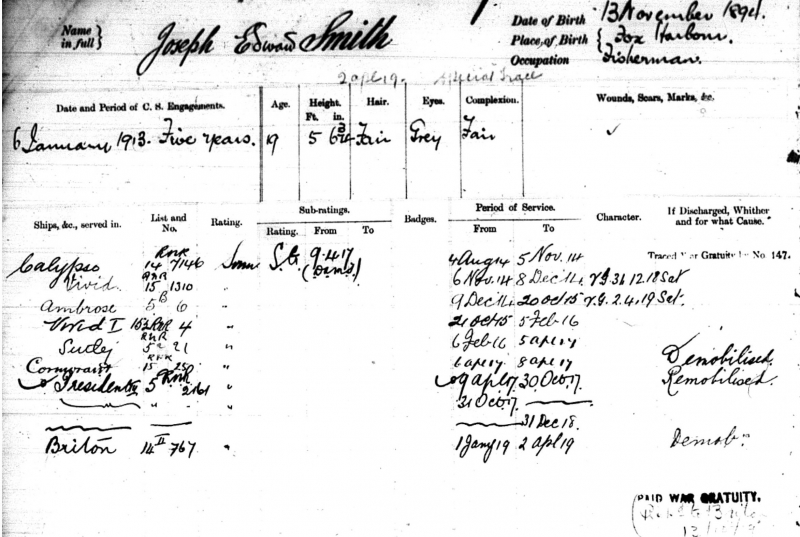 Name in full } Joseph Edward Smith
Date of Birth 13 November 1894.
Place of Birth { Fox Harbour.
Occupation Fisherman.
2 apl 19.
Date and Period of C. S. Engagements. Age. Height. Ft. in. Hair. Eyes. Complexion. Wounds, Scars, Marks, &c.
6 January 1913. Five years. 19 5 6 3/4 Fair Grey Fair ✓
Ships, &c., served in. List and No. Rating. Sub-ratings. Rating. From To Badges. Period of Service. From To Character. If Discharged, Whither and for what Cause.
Traced War Gratuity No 147.
Calypso RNR 14 7146 S.G. 9.4.17 (Dams) 4 Aug 14 5 Nov. 14
Vivid RNR 15 1310 " 6 Nov. 14 8 Dec 14 V.G. 31 12.18 Sat
Ambrose 5B 6 " 9 Dec 14 20 Oct 15 V.G. 2.4.19 Sat.
Vivid I RNR 4 " 21 Oct 15 5 Feb 16
Sutlej RNR 5a 21 " 6 Feb 16 5 apl 17
Cormorant RNR 15 " 6 apl 17 8 apl 17 Demobilised.
President III 5 RNR 2161 " 9 apl 17 30 Oct. 17 Remobilised.
" " " 31 Oct. 17.
31 Dec 18.
Briton 14 II 767 " 1 Jany 19 2 apl 19 Demob.
PAID WAR GRATUITY.